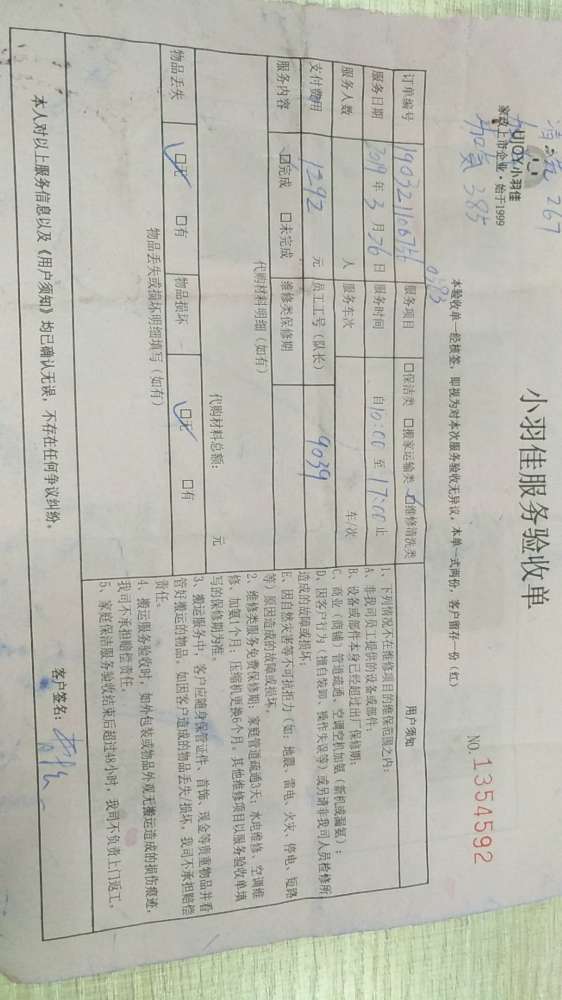 清洗 267
加氨 385
UJOY小羽佳
家政上市企业·始于1999
小羽佳服务验收单
NO.1354592
本验收单一经核签，即视为对本次服务验收无异议，本单一式两份，客户留存一份（红）
订单编号
服务项目 □保洁类 □搬家运输类 ☑维修清洗类
服务日期 2019年3月26日 服务时间 自10:00至17:00止
服务人数 人 服务车次 车/次
支付费用 1292 元 员工工号（队长） 9039
服务内容 ☑完成 □未完成 维修类保修期
代购材料明细（如有）
代购材料总额： 元
物品丢失 ☑无 □有 物品损坏 ☑无 □有
物品丢失或损坏明细填写（如有）
用户须知
1、下列情况不在维修项目的维保范围之内：
A、非我司员工提供的设备或部件；
B、设备或部件本身已经超过出厂保修期；
C、商业（商铺）管道疏通、空调空机加氨（新机或漏氨）；
D、因客户行为（擅自装卸、操作失误等）或另请非我司人员检修所
造成的故障或损坏；
E、因自然灾害等不可抗拒力（如：地震、雷电、火灾、停电、短路
等）原因造成的故障或损坏。
2、维修类服务免费保修期：家庭管道疏通3天；水电维修、空调维
修、加氨1个月；压缩机更换6个月。其他维修项目以服务验收单填
写的保修期为准。
3、搬运服务中，客户应随身保管证件、首饰、现金等贵重物品并看
管好搬运的物品。如因客户造成的物品丢失/损坏，我司不承担赔偿
责任。
4、搬运服务验收时，如外包装或物品外观无搬运造成的损伤痕迹，
我司不承担赔偿责任。
5、家庭保洁服务验收结束后超过48小时，我司不负责上门返工。
本人对以上服务信息以及《用户须知》均已确认无误，不存在任何争议纠纷。
客户签名：